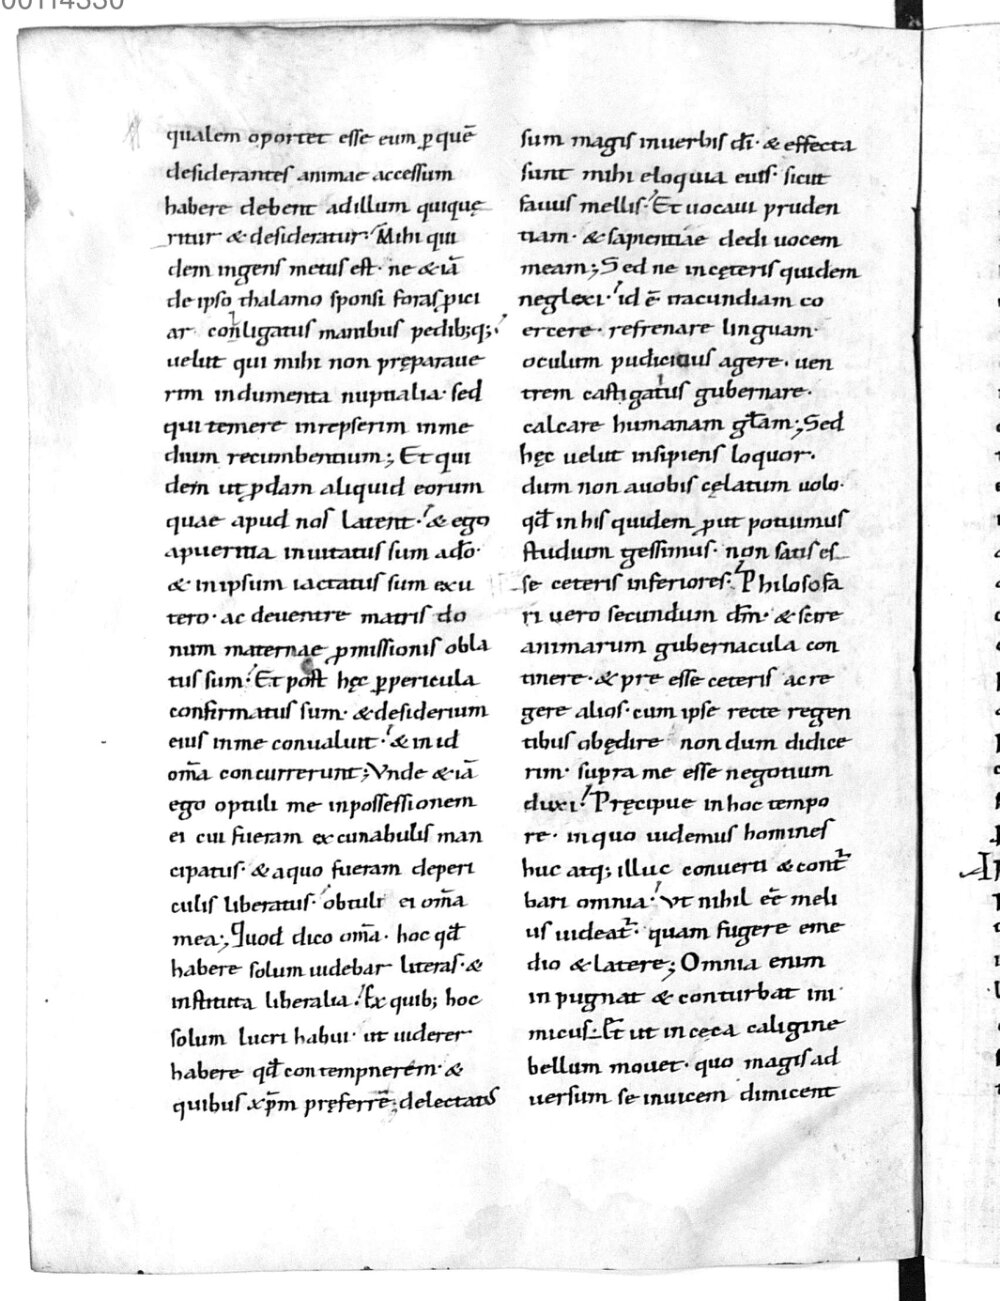 00114330
qualem oportet esse eum ꝑ quē
desiderantes animae accessum
habere debent ad illum qui quę
ritur & desideratur. Mihi qui
dem ingens metus est. ne & iā
de ipso thalamo sponsi foras ꝓici
ar conligatus manibus pedib;q;
uelut qui mihi non pręparaue
rim indumenta nuptialia. sed
qui temere inrepserim in me
dium recumbentium; Et qui
dem ut ꝓdam aliquid eorum
quae apud nos latent. & ego
a pueritia inuitatus sum a dō.
& in ipsum iactatus sum ex u
tero. ac de uentre matris do
num maternae ꝓmissionis obla
tus sum. Et post hęc ꝑ pericula
confirmatus sum. & desiderium
eius in me conualuit. & in id
om̄a concurrerunt; Vnde & iā
ego optuli me in possessionem
ei cui fueram ex cunabulis man
cipatus. & a quo fueram de peri
culis liberatus. obtuli ei om̄a
mea; Quod dico om̄a. hoc qđ
habere solum uidebar literas. &
instituta liberalia. Ex quib; hoc
solum lucri habui. ut uiderer
habere qđ contempnerem. &
quibus xp̄m pręferrē; delectatus
sum magis in uerbis dī. & effecta
sunt mihi eloquia eius. sicut
fauus mellis. Et uocaui pruden
tiam. & sapientiae dedi uocem
meam; Sed ne in cęteris quidem
neglexi. id ē iracundiam co
ercere. refrenare linguam.
oculum pudicius agere. uen
trem castigatius gubernare.
calcare humanam gl̄am; Sed
hęc uelut insipiens loquor.
dum non a uobis cęlatum uolo.
qđ in his quidem ꝓut potuimus
studium gessimus. non satis es
se ceteris inferiores. Philosofa
ri uero secundum dm̄. & scire
animarum gubernacula con
tinere. & pre esse ceteris ac re
gere alios. cum ipse recte regen
tibus obędire non dum didice
rim. supra me esse negotium
duxi. Pręcipue in hoc tempo
re. in quo uidemus homines
huc atq; illuc conuerti & cont
bari omnia. Vt nihil eē meli
us uideat. quam fugere e me
dio & latere; Omnia enim
inpugnat & conturbat ini
micus. Et ut in cęca caligine
bellum mouet. quo magis ad
uersum se inuicem dimicent